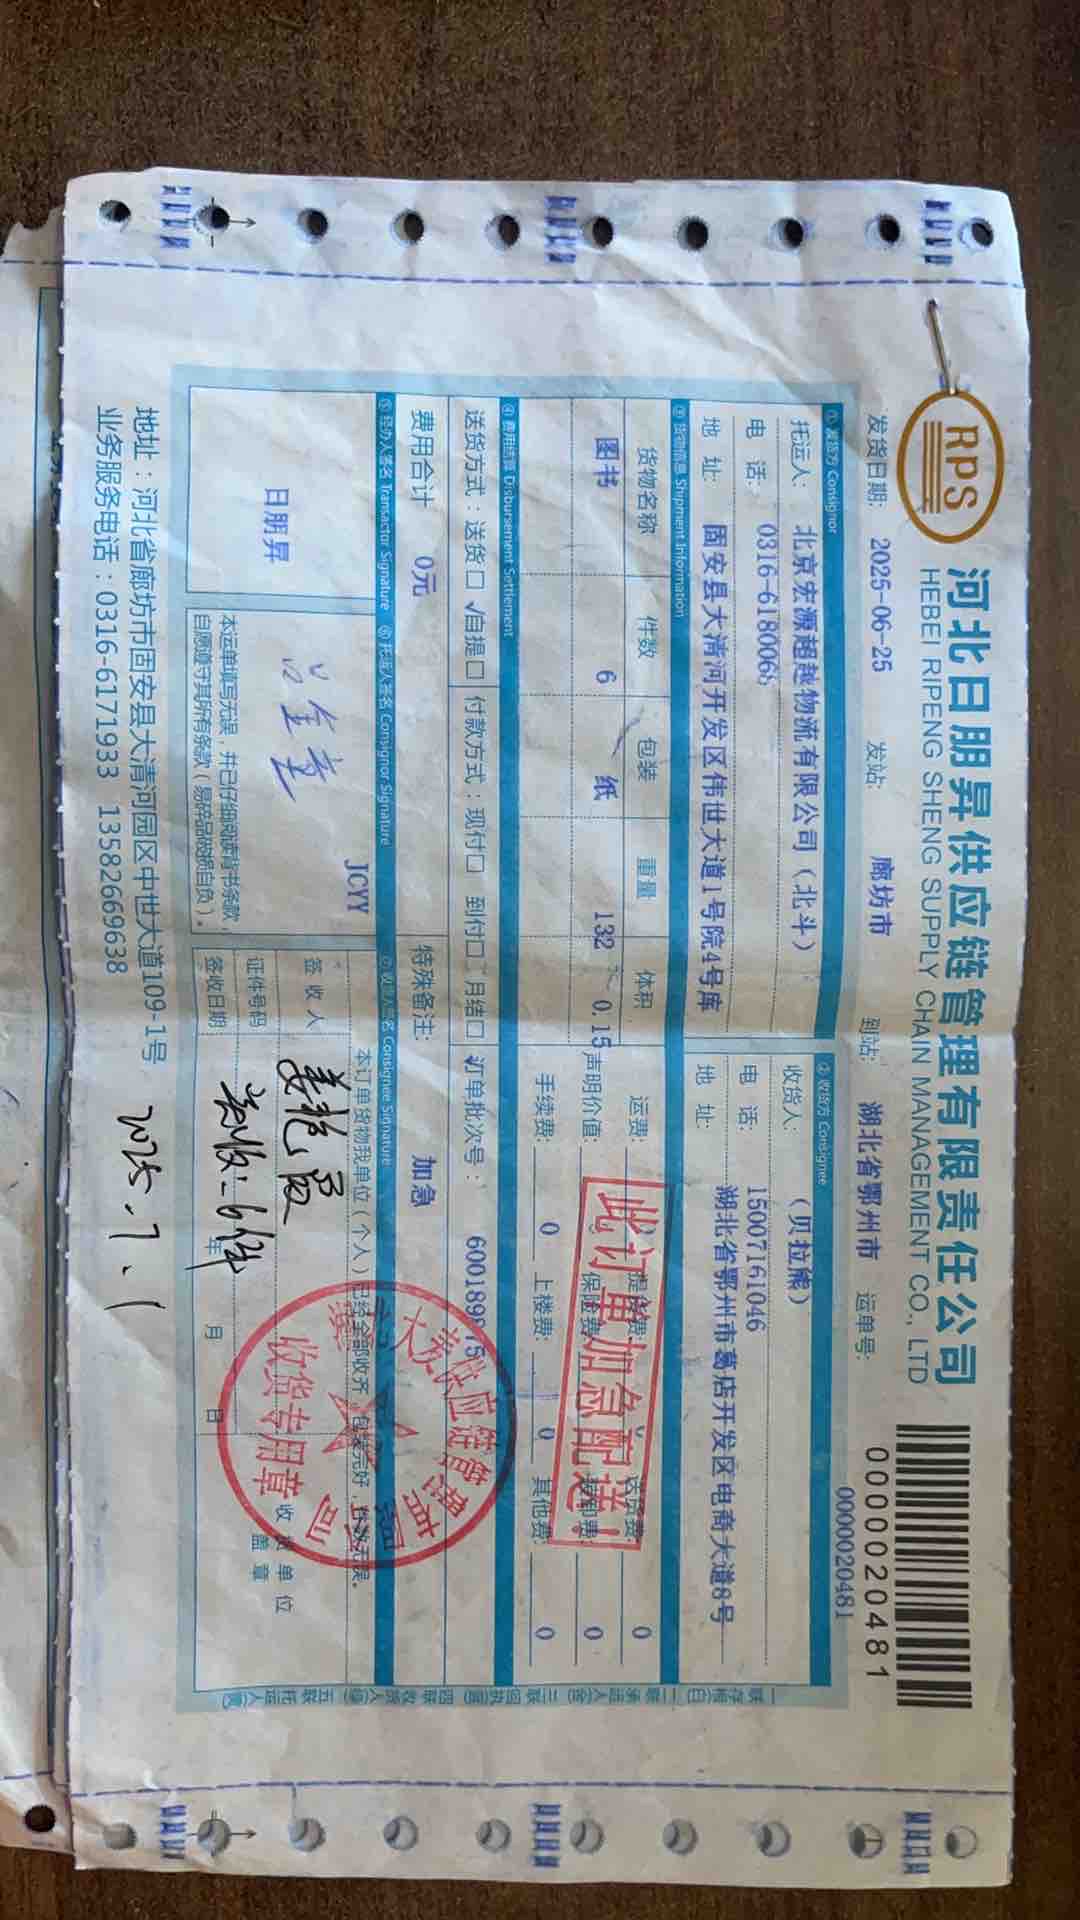 RPS
河北日朋昇供应链管理有限责任公司
HEBEI RIPENG SHENG SUPPLY CHAIN MANAGEMENT CO., LTD
0000020481
0000020481
发货日期: 2025-06-25 发站: 廊坊市 到站: 湖北省鄂州市 运单号:
① 发货方 Consignor
托运人: 北京宏源超越物流有限公司（北斗）
电 话: 0316-6180066
地 址: 固安县大清河开发区伟世大道1号院4号库
② 收货方 Consignee
收货人: （贝拉熊）
电 话: 15007161046
地 址: 湖北省鄂州市葛店开发区电商大道8号
③ 货物信息 Shipment Information
货物名称 件数 包装 重量 体积
图书 6 纸 132 0.15
运费: 提货费: 送货费: 0
声明价值: 保险费: 装卸费: 0
手续费: 0 上楼费: 0 其他费: 0
此订单加急配送！
④ 费用结算 Disbursement Settlement
送货方式：送货□ √自提□ 付款方式：现付□ 到付□ 月结□ √订单批次号： 600189875
费用合计 0元 特殊备注: 加急
⑤ 经办人签名 Transactor Signature ⑥ 托运人签名 Consignor Signature ⑦ 收货人签名 Consignee Signature
日朋昇
JCYY
本运单填写无误，并已仔细阅读背书条款，
自愿遵守其所有条款（易碎品破损自负）。
本订单货物我单位（个人）已经全部收齐，包装完好，件数无误。
签 收 人
证件号码
签收日期: 年 月 日
实收:6件
收货单位
盖 章
收货专用章
2025.7.1
地址：河北省廊坊市固安县大清河园区中世大道109-1号
业务服务电话：0316-6171933 13582669638